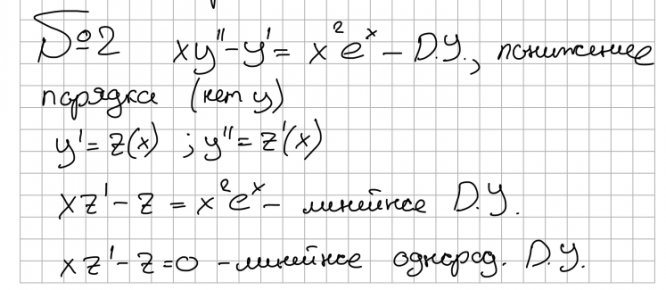 №2 xy'' - y' = x²eˣ - D.У., понижение
порядка (нет y)
y' = z(x) ; y'' = z'(x)
xz' - z = x²eˣ - линейное D.У.
xz' - z = 0 - линейное однород. D.У.